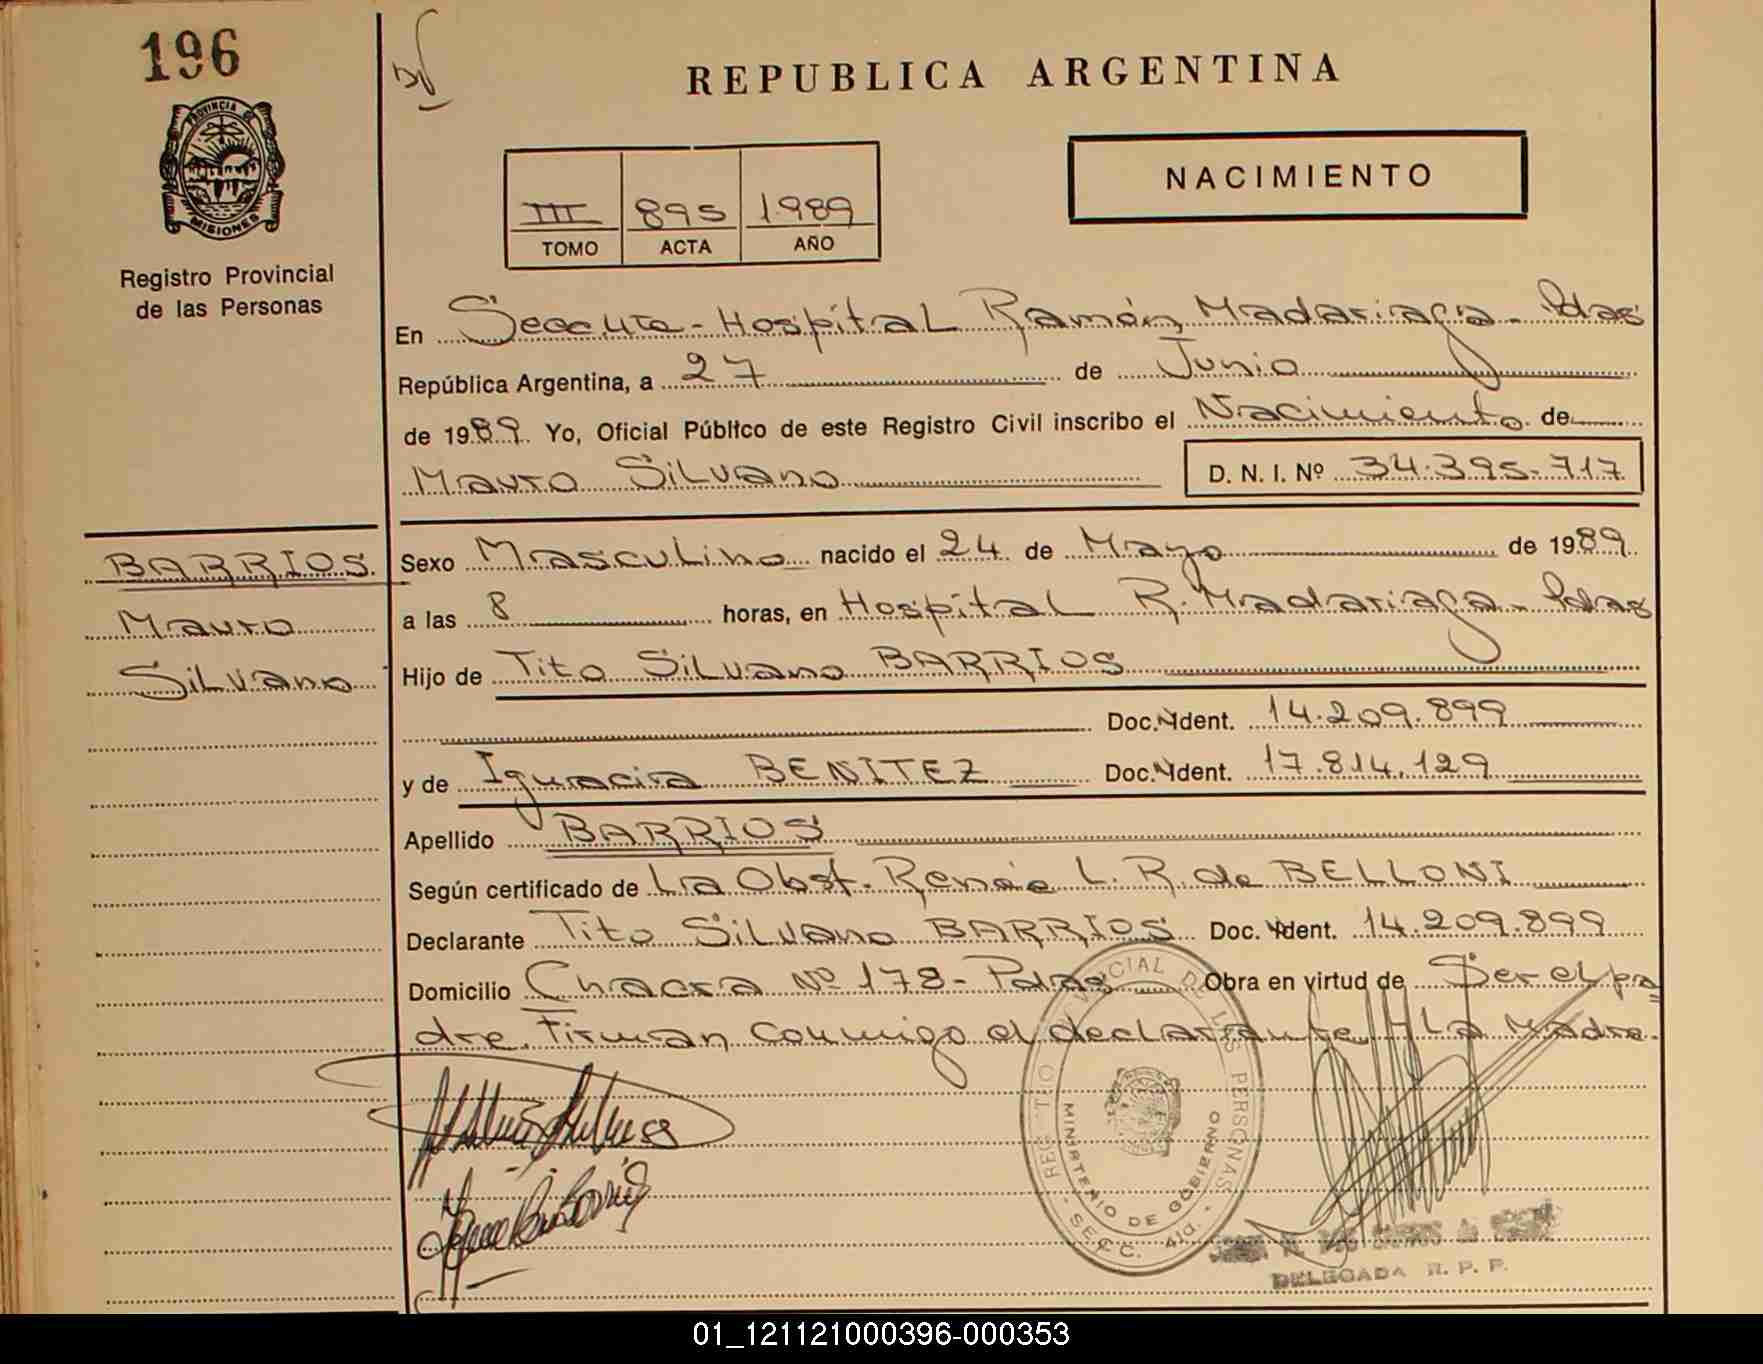 196
PROVINCIA DE
MISIONES
Registro Provincial
de las Personas
REPUBLICA ARGENTINA
III 895 1989
TOMO ACTA AÑO
NACIMIENTO
En Secc. 4ta - Hospital Ramón Madariaga - Pdas
República Argentina, a 27 de Junio
de 1989. Yo, Oficial Público de este Registro Civil inscribo el Nacimiento de
Mauro Silvano D. N. I. Nº 34.395.717
BARRIOS
Mauro
Silvano
Sexo Masculino nacido el 24 de Mayo de 1989
a las 8 horas, en Hospital R. Madariaga - Pdas
Hijo de Tito Silvano BARRIOS
Doc. N Ident. 14.209.899
y de Ignacia BENITEZ Doc. N Ident. 17.814.129
Apellido BARRIOS
Según certificado de La Obst. Renée L. R. de BELLONI
Declarante Tito Silvano BARRIOS Doc. N Ident. 14.209.899
Domicilio Chacra Nº 178 - Pdas Obra en virtud de Ser el pa-
dre. Firman conmigo el declarante y La Madre.
REGISTRO PROVINCIAL DE LAS PERSONAS
MINISTERIO DE GOBIERNO
SECC. 4ta.
DELEGADA R. P. P.
01_121121000396-000353